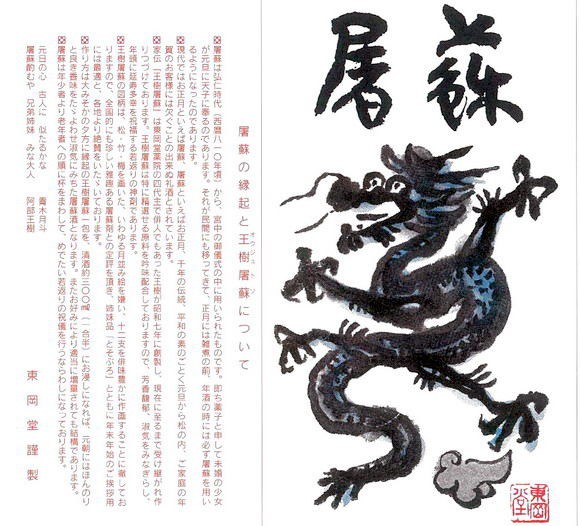 屠蘇
東岡堂
屠蘇の縁起と王樹屠蘇について
オウジュトソ
※屠蘇は弘仁時代（西暦八一〇年頃）から、宮中の御儀式の中に用いられたものです。即ち薬子と申して未婚の少女
が元旦に天子に奉るのであります。それが民間にも移ってきて、正月には雑煮の前、年酒の時には必ず屠蘇を用い
るようになったのであります。
※現代ではお正月といえば屠蘇、屠蘇といえばお正月、千年の伝統、平和の素のごとく元旦から松の内、ご家庭の年
賀のお客様には欠ぐことの出来ぬ礼酒とされています。
※家伝「王樹屠蘇」は東岡堂薬院の四代主で俳人でもあった王樹が昭和七年に創製し、現在に至るまで受け継がれ作
りつづけております。王樹屠蘇は特に精選せる原料を吟味配合しておりますので、芳香馥郁、淑気をみなぎらし、
年頭に延寿多幸を祝福する若返りの神剤であります。
※王樹屠蘇の図柄は、松・竹・梅を画いた、いわゆる月並み絵を嫌い、十二支を俳味豊かに作画することに徹してお
りますので、全国的にも珍しい雅趣ある屠蘇剤との定評を頂き、姉妹品「とそぶろ」とともに年末年始のご挨拶用
には最適と、各地より絶賛をいただいております。
※作り方は大みそか夕方に縁起の王樹屠蘇一包を、清酒約三〇〇㎖（一合半）にお浸しになれば、元朝にはほんのり
と良き香味をただよわせ淑気にみちた屠蘇酒となります。またお好みにより適当に増量されても結構であります。
※屠蘇は年少者より老年者への順に杯をまわして、めでたい若返りの祝儀を行うならわしになっております。
元日の心 古人に 似たるかな 青木月斗
屠蘇酌むや 兄弟姉妹 みな大人 阿部王樹
東岡堂謹製